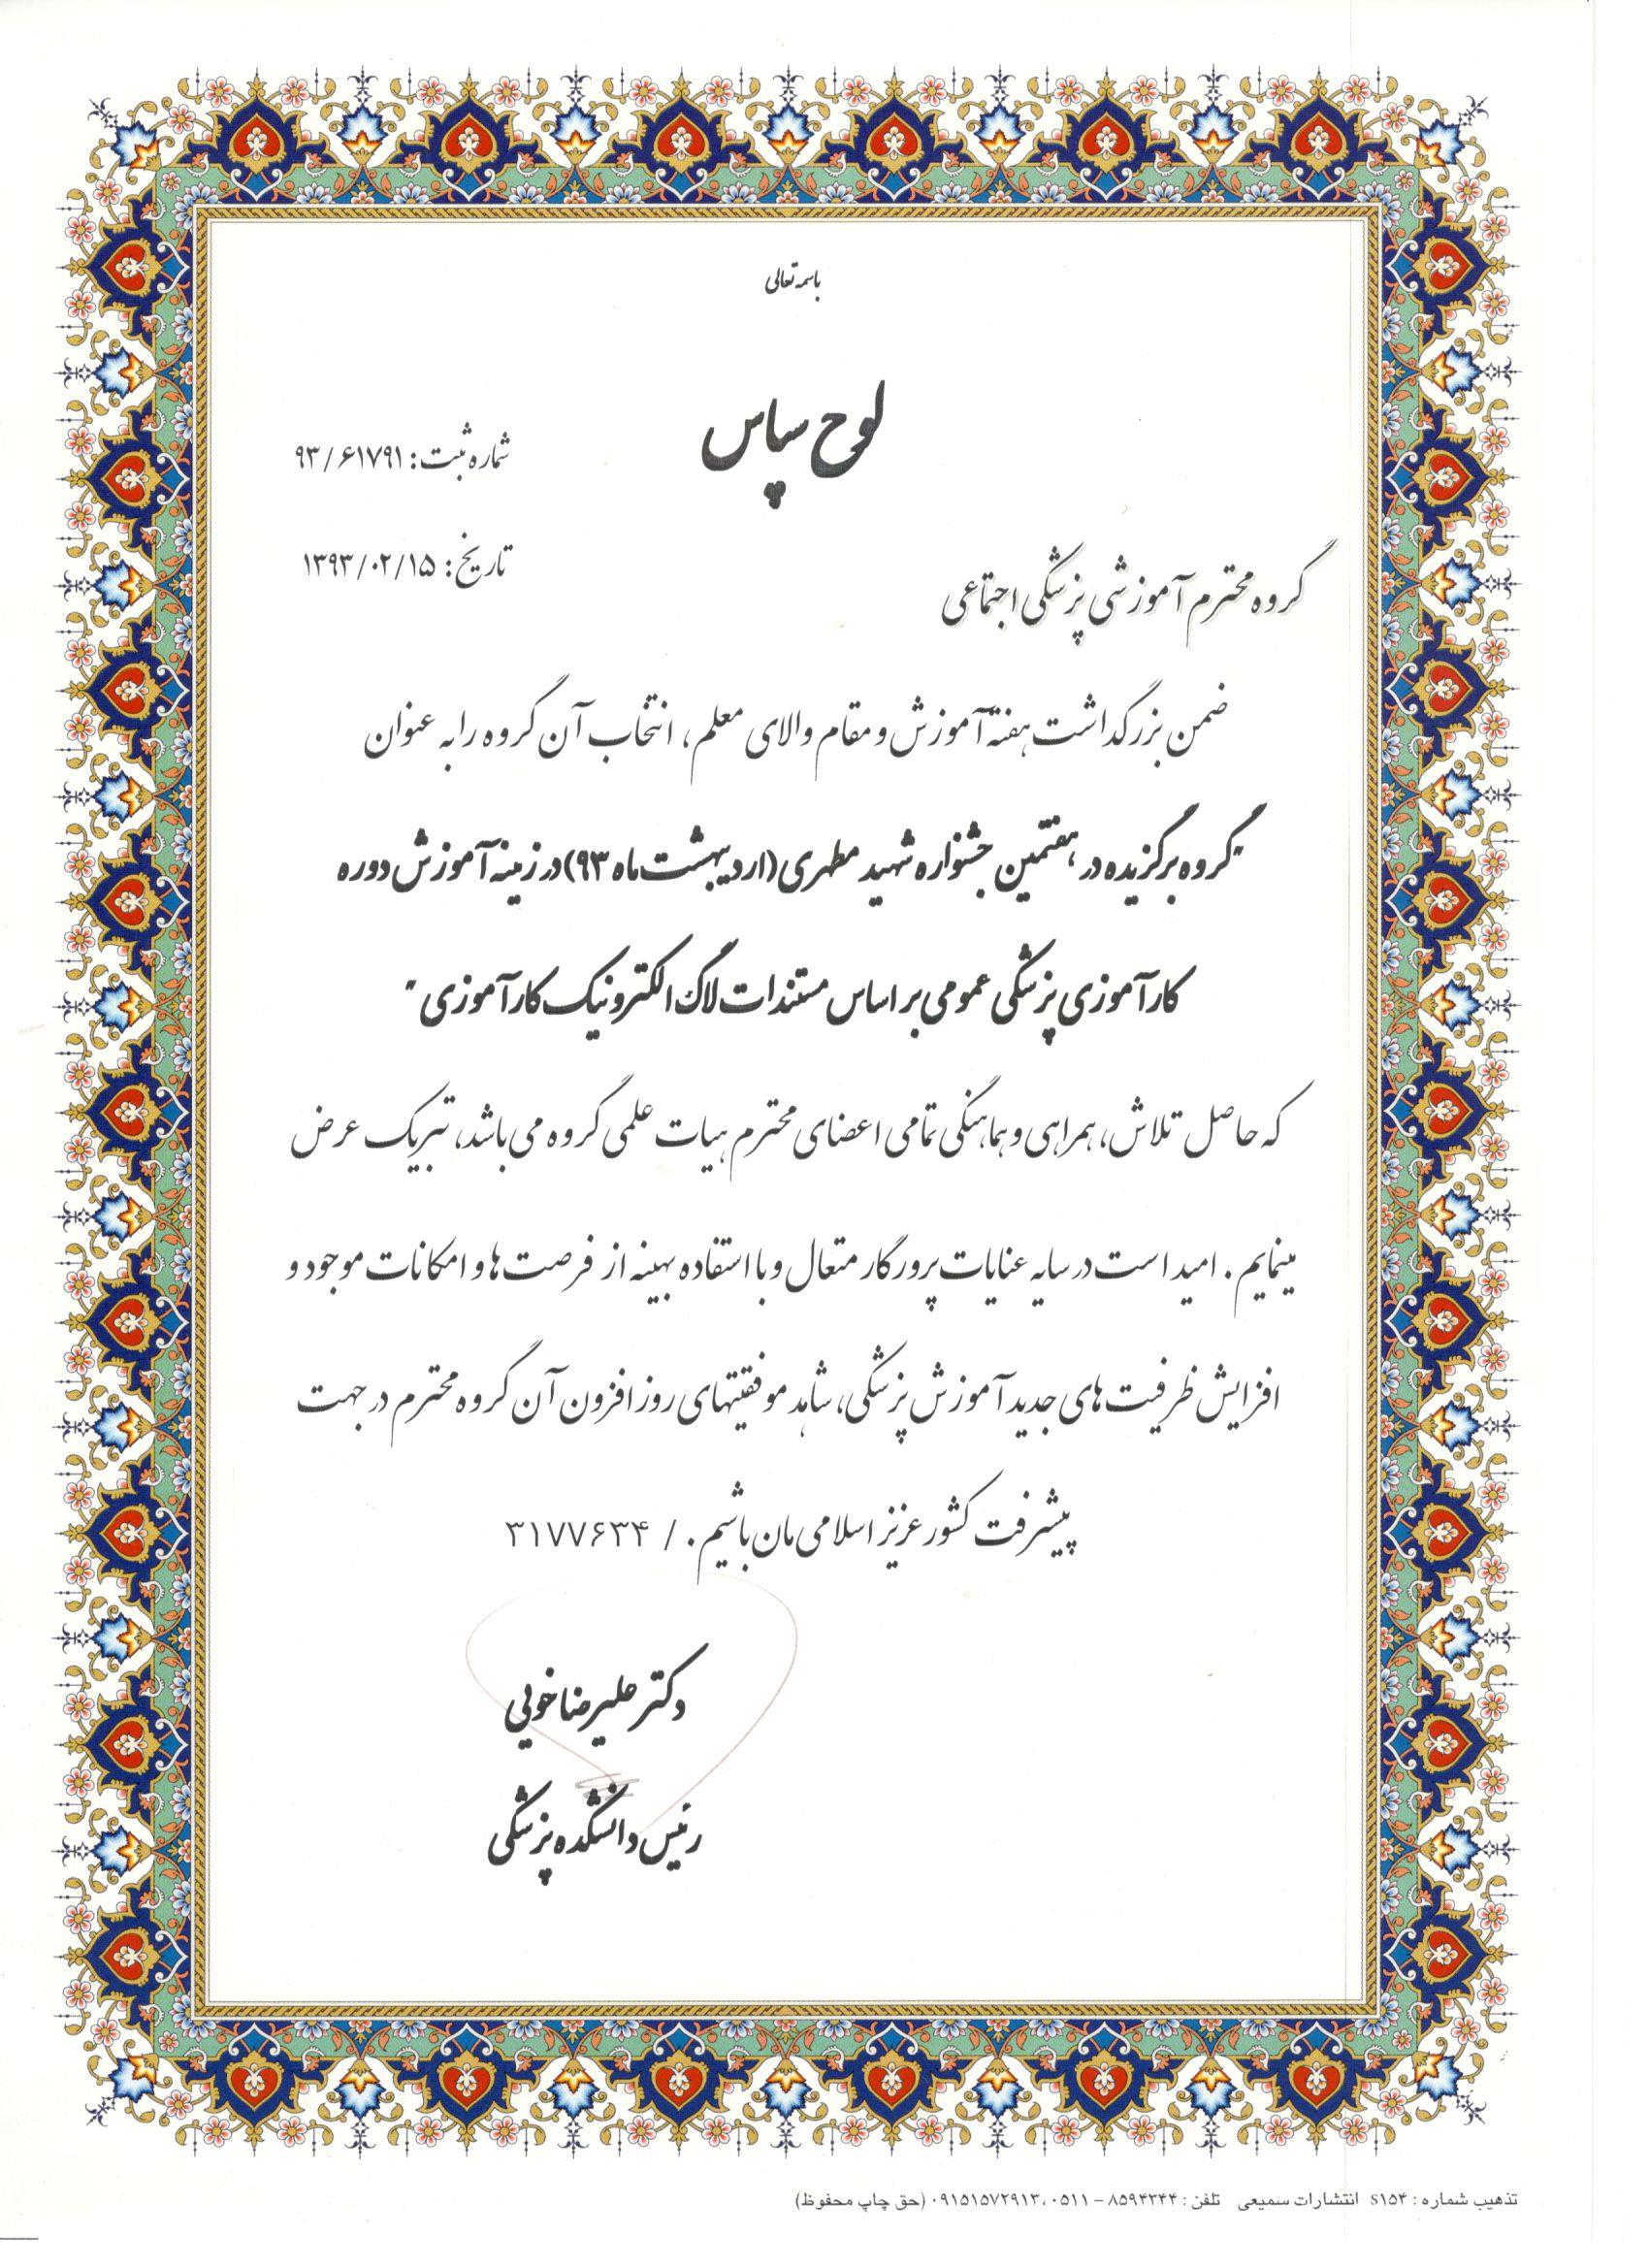 باسمه تعالی
لوح سپاس
شماره ثبت: ۹۳/۶۱۷۹۱
تاریخ: ۱۳۹۳/۰۲/۱۵
گروه محترم آموزشی پزشکی اجتماعی
ضمن بزرگداشت هفته آموزش و مقام والای معلم، انتخاب آن گروه را به عنوان
"گروه برگزیده در هفتمین جشنواره شهید مطهری (اردیبهشت ماه ۹۳) در زمینه آموزش دوره
کارآموزی پزشکی عمومی بر اساس مستندات لاگ الکترونیک کارآموزی"
که حاصل تلاش، همراهی و هماهنگی تمامی اعضای محترم هیات علمی گروه می باشد، تبریک عرض
مینمایم. امید است در سایه عنایات پرورگار متعال و با استفاده بهینه از فرصت ها و امکانات موجود و
افزایش ظرفیت های جدید آموزش پزشکی، شاهد موفقیتهای روز افزون آن گروه محترم در جهت
پیشرفت کشور عزیز اسلامی مان باشیم. / ۳۱۷۷۶۳۴
دکتر علیرضا خویی
رئیس دانشکده پزشکی
تذهیب شماره: S۱۵۴ انتشارات سمیعی تلفن: ۸۵۹۴۳۴۴ – ۰۵۱۱، ۰۹۱۵۱۵۷۲۹۱۳ (حق چاپ محفوظ)